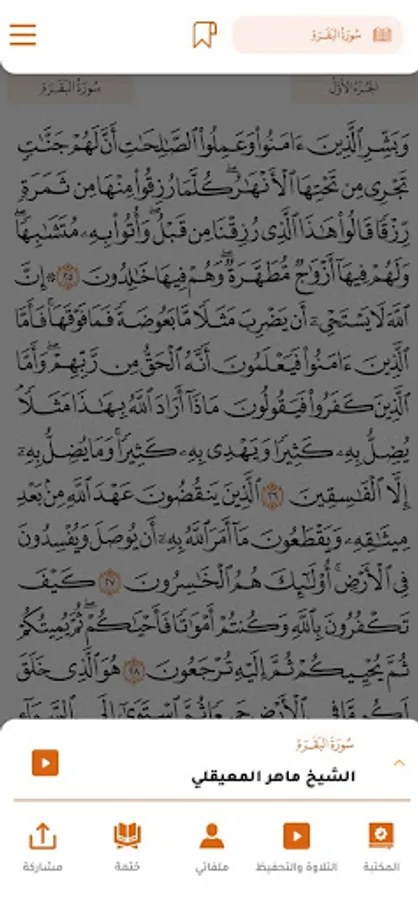 سُورَةُ البَقَرَةِ
الجُزءُ الأَوَّلُ
سُورَةُ البَقَرَةِ
وَبَشِّرِ ٱلَّذِينَ ءَامَنُوا۟ وَعَمِلُوا۟ ٱلصَّـٰلِحَـٰتِ أَنَّ لَهُمْ جَنَّـٰتٍ
تَجْرِى مِن تَحْتِهَا ٱلْأَنْهَـٰرُ ۖ كُلَّمَا رُزِقُوا۟ مِنْهَا مِن ثَمَرَةٍ
رِّزْقًا قَالُوا۟ هَـٰذَا ٱلَّذِى رُزِقْنَا مِن قَبْلُ ۖ وَأُتُوا۟ بِهِۦ مُتَشَـٰبِهًا ۖ
وَلَهُمْ فِيهَآ أَزْوَٰجٌ مُّطَهَّرَةٌ ۖ وَهُمْ فِيهَا خَـٰلِدُونَ ٢٥ ۞ إِنَّ
ٱللَّهَ لَا يَسْتَحْىِۦٓ أَن يَضْرِبَ مَثَلًا مَّا بَعُوضَةً فَمَا فَوْقَهَا ۚ فَأَمَّا
ٱلَّذِينَ ءَامَنُوا۟ فَيَعْلَمُونَ أَنَّهُ ٱلْحَقُّ مِن رَّبِّهِمْ ۖ وَأَمَّا
ٱلَّذِينَ كَفَرُوا۟ فَيَقُولُونَ مَاذَآ أَرَادَ ٱللَّهُ بِهَـٰذَا مَثَلًا ۘ
يُضِلُّ بِهِۦ كَثِيرًا وَيَهْدِى بِهِۦ كَثِيرًا ۚ وَمَا يُضِلُّ بِهِۦٓ
إِلَّا ٱلْفَـٰسِقِينَ ٢٦ ٱلَّذِينَ يَنقُضُونَ عَهْدَ ٱللَّهِ مِنۢ بَعْدِ
مِيثَـٰقِهِۦ وَيَقْطَعُونَ مَآ أَمَرَ ٱللَّهُ بِهِۦٓ أَن يُوصَلَ وَيُفْسِدُونَ
فِى ٱلْأَرْضِ ۚ أُو۟لَـٰٓئِكَ هُمُ ٱلْخَـٰسِرُونَ ٢٧ كَيْفَ
تَكْفُرُونَ بِٱللَّهِ وَكُنتُمْ أَمْوَٰتًا فَأَحْيَـٰكُمْ ۖ ثُمَّ يُمِيتُكُمْ
ثُمَّ يُحْيِيكُمْ ثُمَّ إِلَيْهِ تُرْجَعُونَ ٢٨ هُوَ ٱلَّذِى خَلَقَ
لَكُم مَّا فِى ٱلْأَرْضِ جَمِيعًا ثُمَّ ٱسْتَوَىٰٓ إِلَى ٱلسَّمَآءِ
سُورَةُ البَقَرَةِ
الشيخ ماهر المعيقلي
المكتبة
التلاوة والتحفيظ
ملفاتي
ختمة
مشاركة